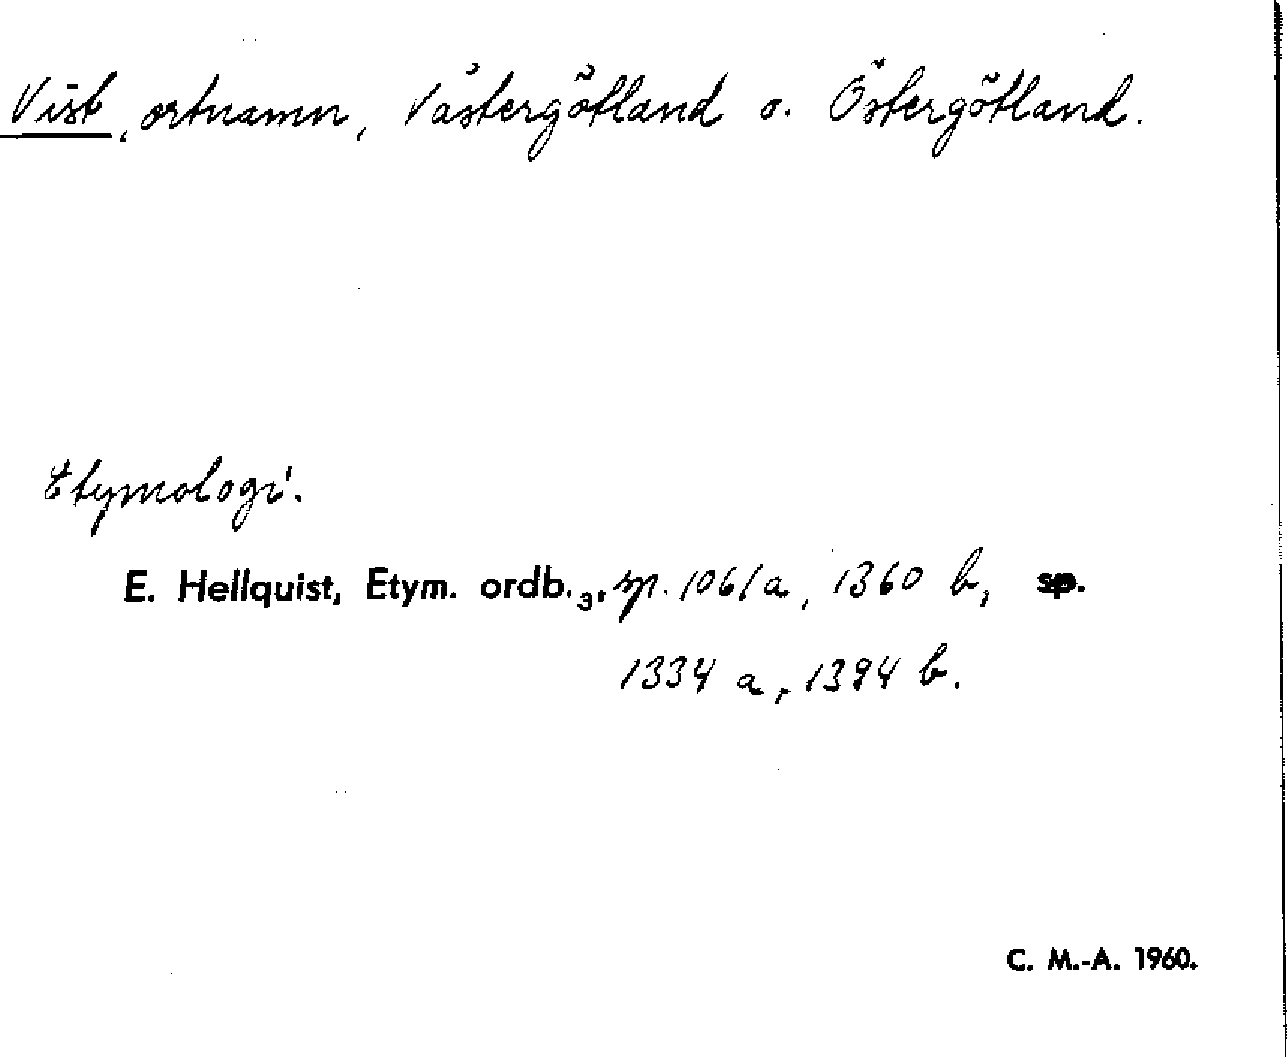 Vist, ortnamn, Västergötland o. Östergötland.
Etymologi.
E. Hellquist, Etym. ordb.₃, sp. 1061 a, 1360 b, sp.
1334 a, 1394 b.
C. M.-A. 1960.